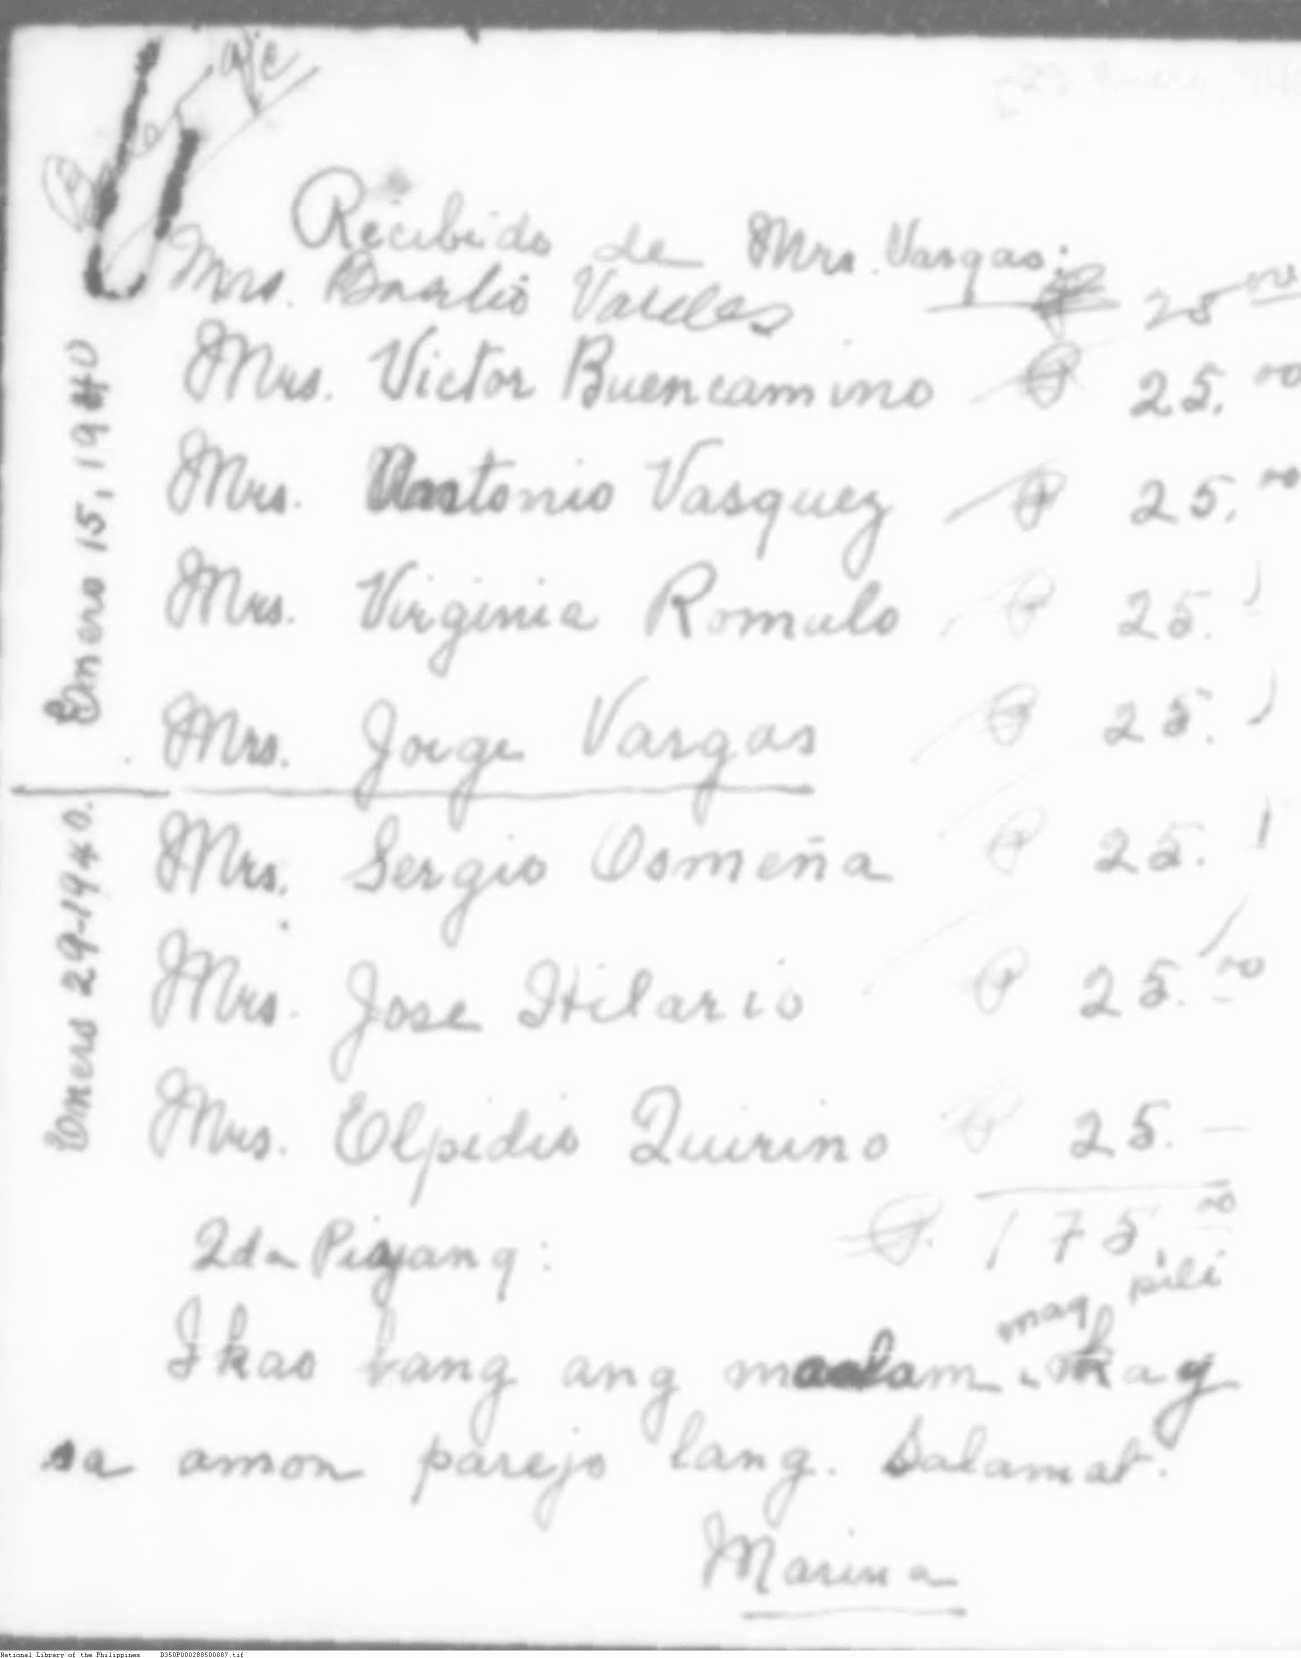 Recibido de Mrs. Vargas:
Mrs. Basilio Valdes ₱ 25.00
Mrs. Victor Buencamino ₱ 25.00
Mrs. Antonio Vasquez ₱ 25.00
Mrs. Virginia Romulo ₱ 25.
Mrs. Jorge Vargas ₱ 25.
Enero 15, 1940
Mrs. Sergio Osmeña ₱ 25.
Mrs. Jose Hilario ₱ 25.00
Mrs. Elpidio Quirino ₱ 25. —
Enero 29-1940.
₱. 175.00
2da Piyang:
mag pili
Ikao bang ang maalam, kay
sa amon parejo lang. Salamat.
Marina
National Library of the Philippines D350P000288500887.tif